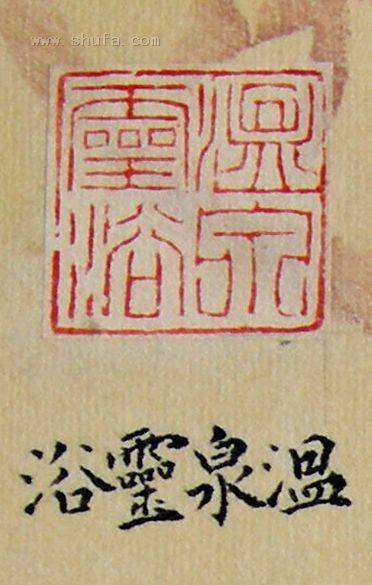 www.shufa.com
溫泉
靈浴
溫泉靈浴